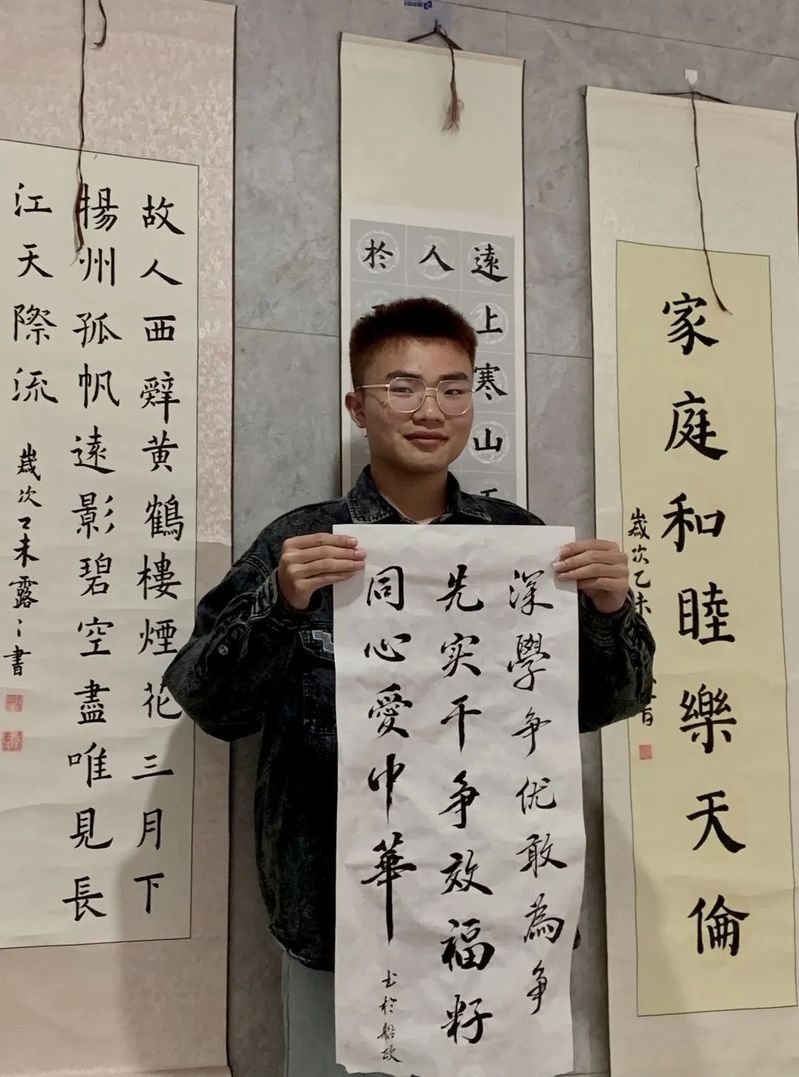 家庭和睦樂天倫
歲次乙未
遠上寒山
人
於
深學争优敢為争
先实干争效福籽
同心愛中華
书於船政
故人西辭黄鶴樓煙花三月下
揚州孤帆遠影碧空盡唯見長
江天際流
歲次乙未露〻書